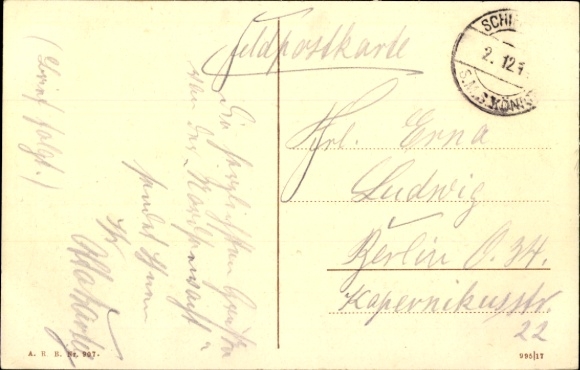 (Brief folgt.)
Die herzlichsten Grüße
von der "Nordseewacht"
sendet Ihnen
Ihr
Feldpostkarte
SCHI
2. 12. 1
S.M.S. KÖNIG
Frl. Erna
Ludwig
Berlin O. 34.
Kopernikusstr.
22
A. R. B. Nr. 997-
995|17